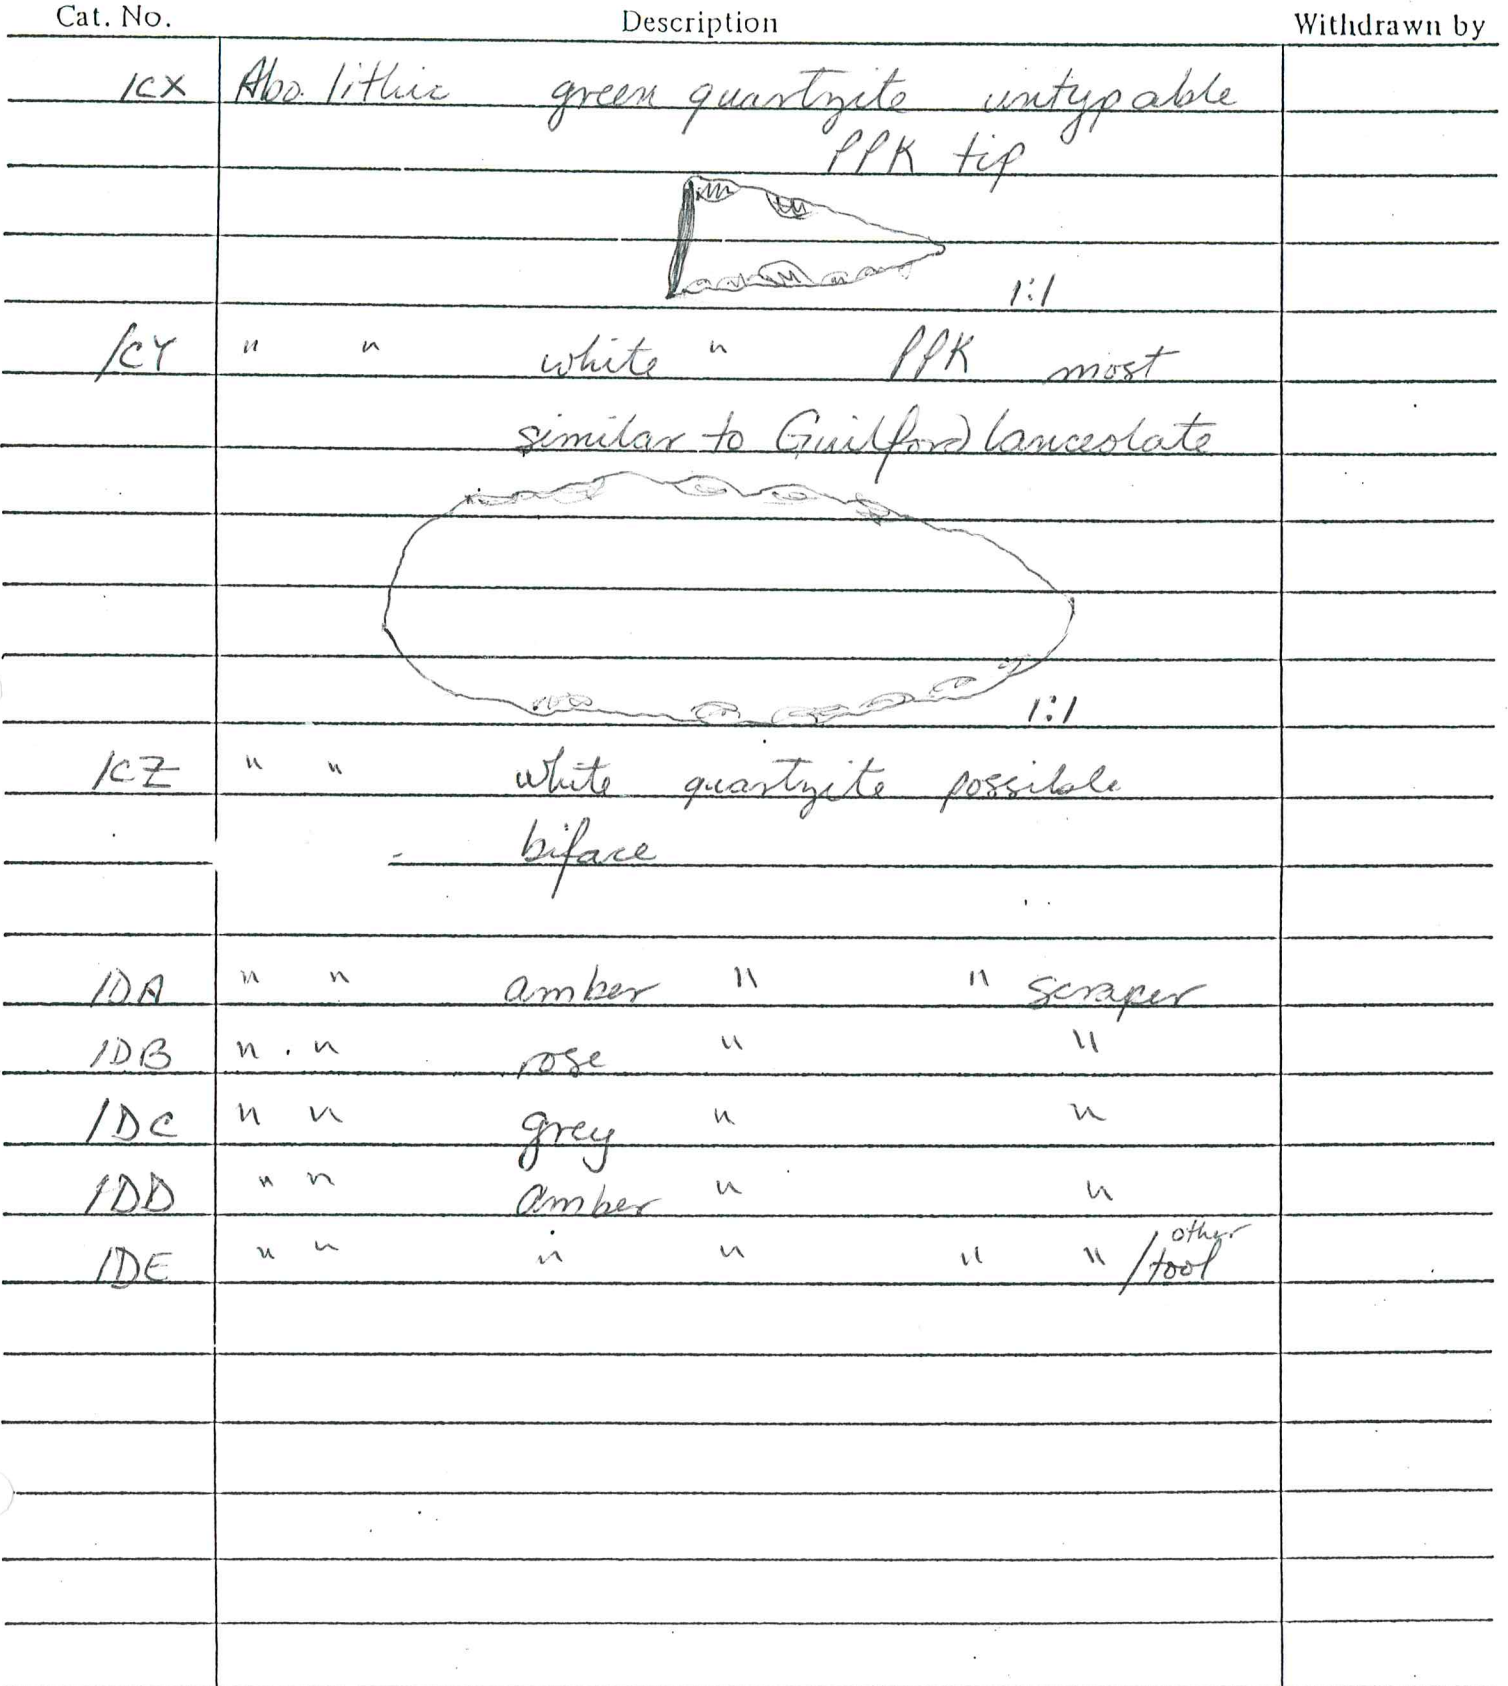 Cat. No. Description Withdrawn by
/CX Abo. lithic green quartzite untypable
PPK tip
1:1
/CY " " white " PPK most
similar to Guilford lanceolate
1:1
/CZ " " white quartzite possible
biface
/DA " " amber " " scraper
/DB " " rose " "
/DC " " grey " "
/DD " " amber " "
/DE " " " " " " / other
tool